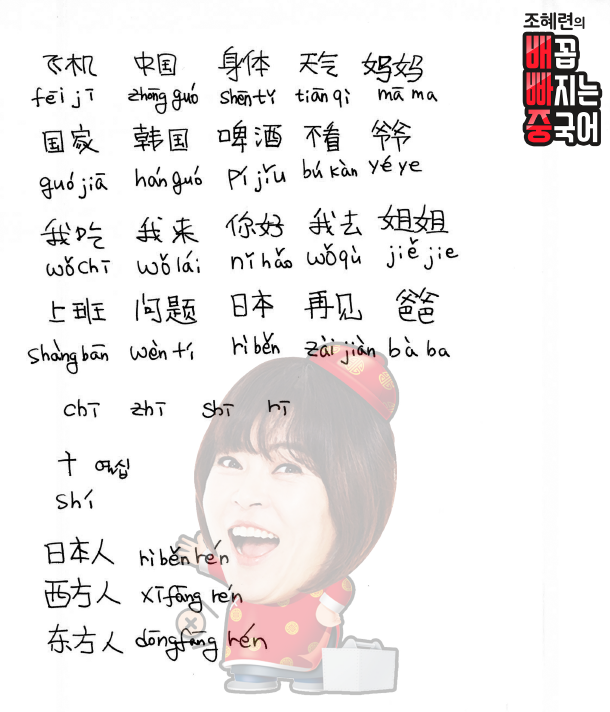 조혜련의
배꼽
빠지는
중국어
飞机 中国 身体 天气 妈妈
fēi jī zhōng guó shēn tǐ tiān qì mā ma
国家 韩国 啤酒 不看 爷爷
guó jiā hán guó pí jiǔ bú kàn yé ye
我吃 我来 你好 我去 姐姐
wǒ chī wǒ lái nǐ hǎo wǒ qù jiě jie
上班 问题 日本 再见 爸爸
shàng bān wèn tí rì běn zài jiàn bà ba
chī zhī shī rī
十 열십
shí
日本人 rì běn rén
西方人 xī fāng rén
东方人 dōng fāng rén